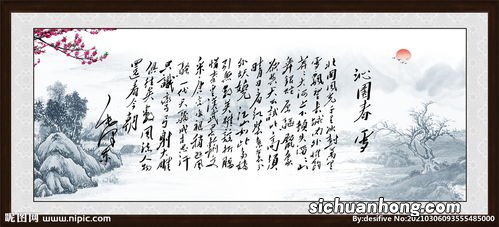 沁园春 雪
北国风光千里冰封万里
雪飘望长城内外惟余
莽莽大河上下顿失滔滔山
舞银蛇原驰蜡象欲
与天公试比高须
晴日看红装素裹分
外妖娆江山如此多娇
引无数英雄竞折腰
惜秦皇汉武略输文
采唐宗宋祖稍逊风
骚一代天骄成吉思汗
只识弯弓射大雕
俱往矣数风流人物
还看今朝
毛泽东
昵图网 www.nipic.com
sichuanhong.com
By:desifive No:20210306093555485000